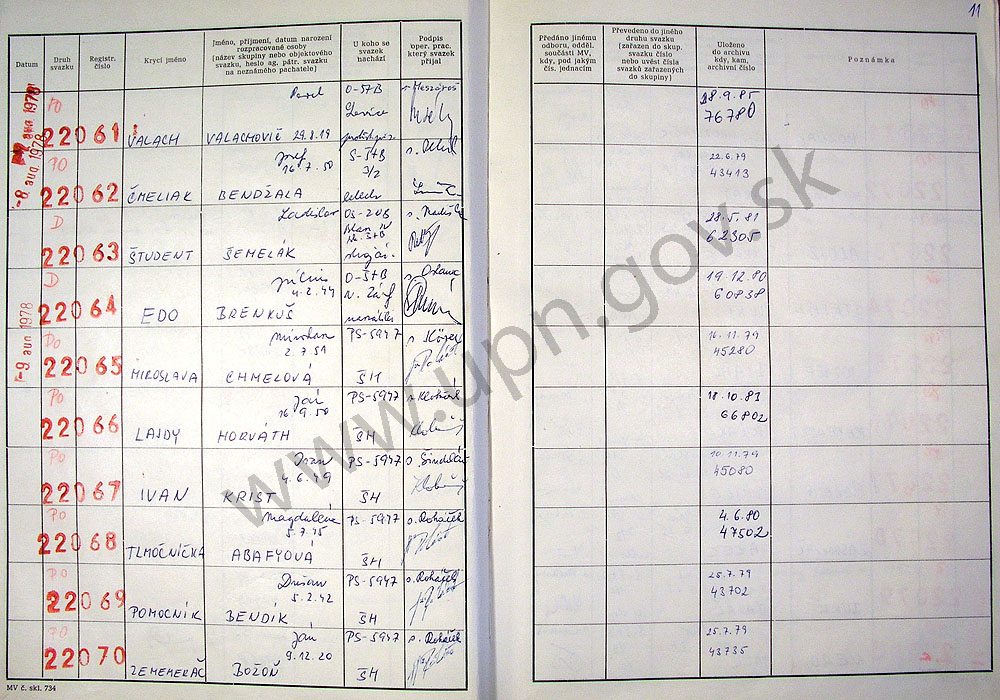 11
Datum
Druh svazku
Registr. číslo
Krycí jméno
Jméno, příjmení, datum narození
rozpracované osoby
(název skupiny nebo objektového
svazku, heslo ag. pátr. svazku
na neznámého pachatele)
U koho se
svazek
nachází
Podpis
oper. prac.
který svazek
přijal
Předáno jinému
odboru, odděl.
součásti MV,
kdy, pod jakým
čís. jednacím
Převedeno do jiného
druhu svazku
(zařazen do skup.
svazku číslo
nebo uvést čísla
svazků zařazených
do skupiny)
Uloženo
do archivu
kdy, kam,
archivní číslo
Poznámka
PO Pavel
22061 VALACH VALACHOVIČ 29.8.19
28.9.85
76780
-8. aug. 1978
PO Jozef
16.7.50 3/2
22062 ČMELIAK BENDŽALA
22.6.79
43413
D Ladislav
22063 ŠTUDENT ŠEMELÁK
28.5.81
62305
D Július
22064 EDO BRENKUŠ
19.12.80
60838
-9. aug 1978
PO PS-5947
2.7.51
22065 MIROSLAVA CHMELOVÁ ŠH
16.11.79
45280
PO Ján PS-5947
16.9.50
22066 LAJDY HORVÁTH ŠH
18.10.83
66802
PO Ivan PS-5947
4.6.49
22067 IVAN KRIST ŠH
10.11.79
45080
PO Magdaléna PS-5947 s. Roháček
5.7.45
22068 TLMOČNÍČKA ABAFYOVÁ ŠH
4.6.80
47502
PO Dušan PS-5947 s. Roháček
5.2.42
22069 POMOCNÍK BENDÍK ŠH
25.7.79
43702
PO Ján PS-5947 s. Roháček
9.12.20
22070 ZEMEMERAČ BOŽOŇ ŠH
25.7.79
43735
MV č. skl. 734
www.upn.gov.sk